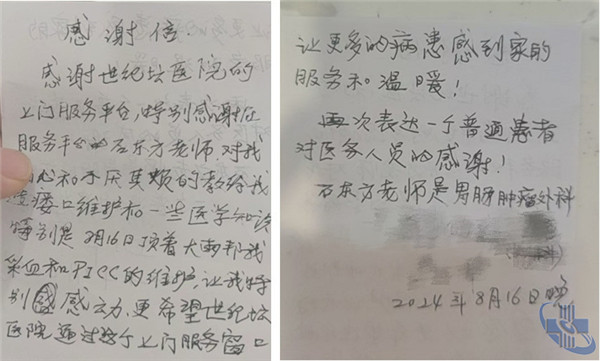 感谢信
感谢世纪坛医院的
上门服务平台,特别感谢在
服务平台的石东方老师.对我
心和不厌其烦的教给我
造瘘口维护和一些医学知识
特别是8月16日顶着大雨帮我
采血和PICC的维护,让我特
别感动,更希望世纪坛
医院通过这个上门服务窗口
让更多的病患感到家的
服务和温暖!
再次表达一个普通患者
对医务人员的感谢!
石东方老师是胃肠肿瘤外科
2024年8月16日晚